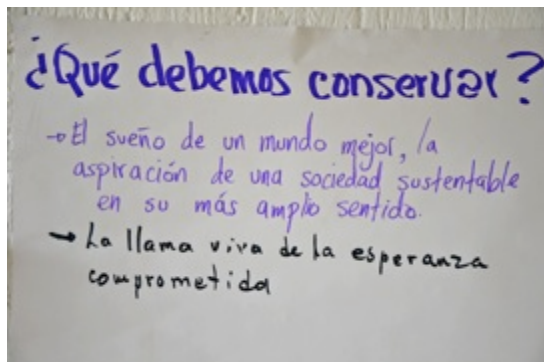 ¿Qué debemos conservar?
→ El sueño de un mundo mejor, la
aspiración de una sociedad sustentable
en su más amplio sentido.
→ La llama viva de la esperanza
comprometida